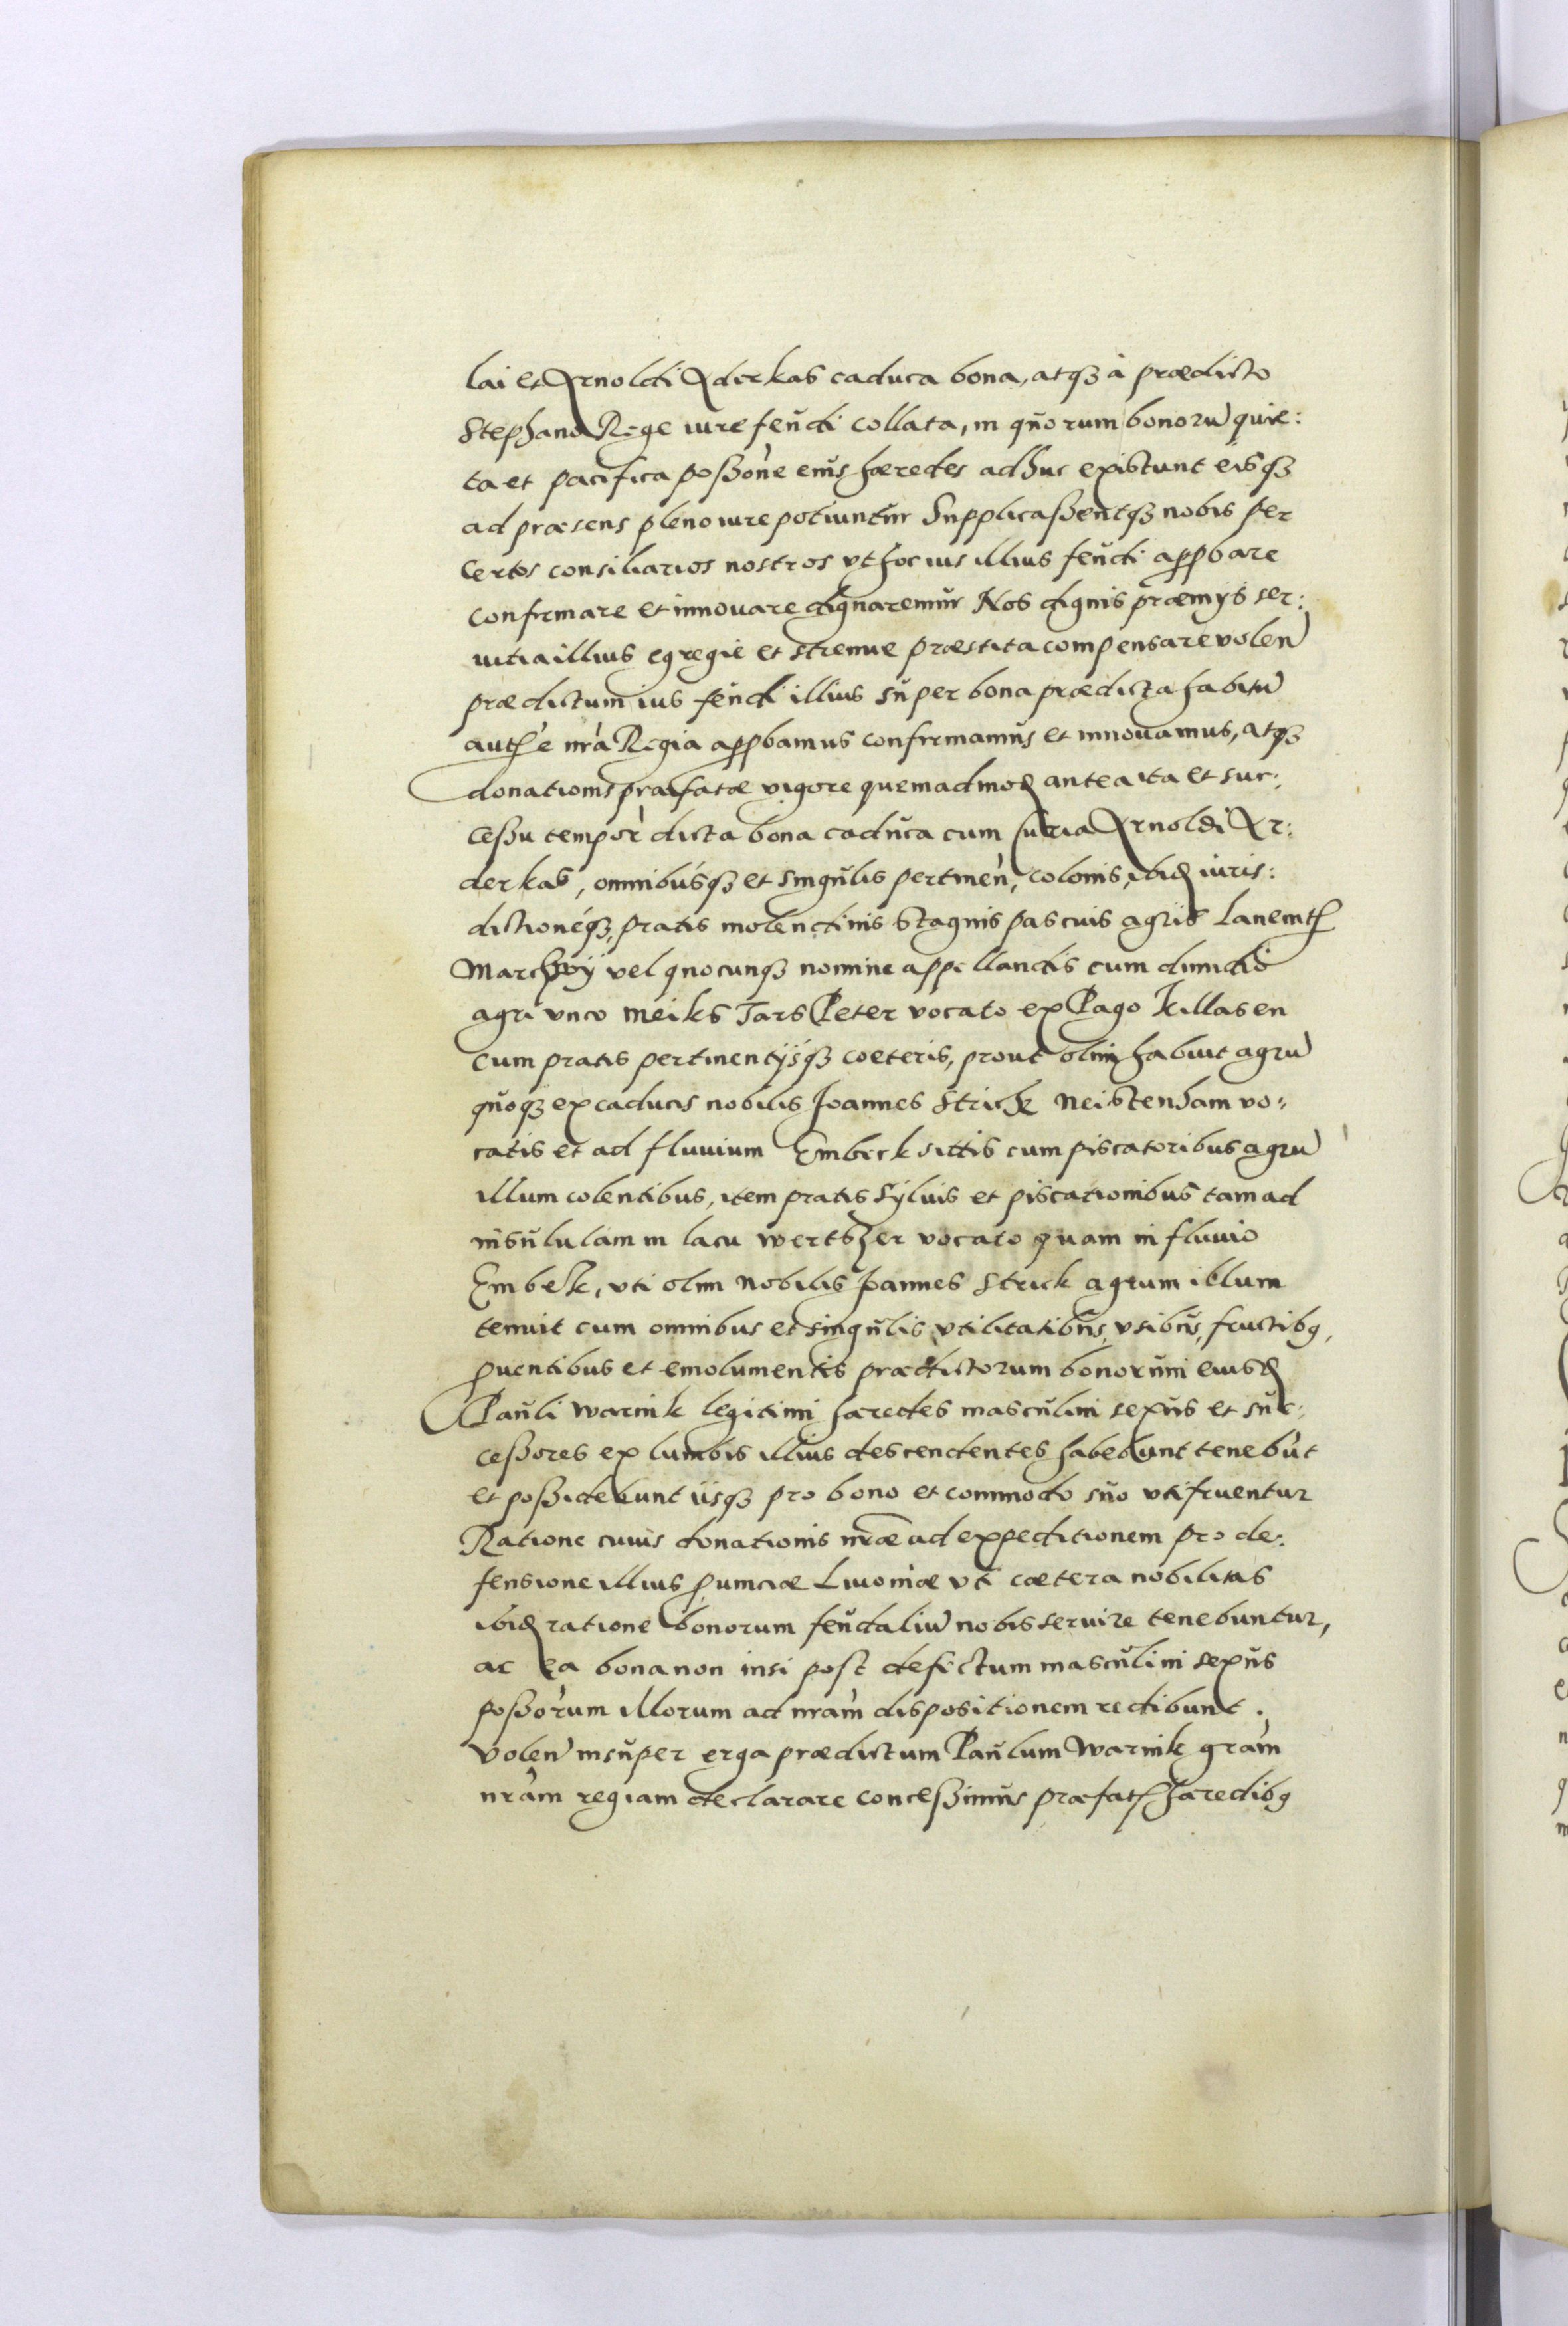 lai et Arnoldi Aderkas caduca bona, atq3 à prædicto
Stephano Rege iure feudi collata, in quorum bonorū quie:
ta et pacifica poßōne eius hæredes adhuc existunt eisq3
ad præsens pleno iure potiuntur Supplicaßentq3 nobis per
certos consiliarios nostros vt hoc ius illius feudi appbare
confirmare et innouare dignaremur Nos dignis præmijs ser:
uitia illius egregie et strenue præstita compensare volen̄
prædictum ius feudi illius super bona prædicta habitū
auth̄e nr̄a Regia appbamus confirmamus et innouamus, atq3
donationis præfatæ vigore quemadmod antea ita et suc:
ceßu tempor̄ dicta bona caduca cum curia Arnoldi A:
derkas, omnibusq3 et singulis pertinen̄, colonis, ibid iuris:
dictioneq3, pratis molendinis stagnis pascuis agris
vel quocunq3 nomine appellandis cum dimidio
agri vnco Meiks Jars Peter vocato ex Pago Killasen
cum pratis pertinentijsq3 cœteris, prout olim habuit agrū
quoq3 ex caducis nobilis Joannes Strick Neistenham vo:
catis et ad fluuium Embeck sitis cum piscatoribus agrū
illum colentibus, item pratis syluis et piscationibus tam ad
insululam in lacu Wertsher vocato quam in fluuio
Embek, vti olim nobilis Joannes Strick agrum illum
tenuit cum omnibus et singulis vtilitatibus, vsibus, fructib9,
puentibus et emolumentis prædictorum bonorum eiusd
Pauli Warnik legitimi hæredes masculini sexus et suc:
ceßores ex lumbis illius descendentes habebunt tenebūt
et poßidebunt iisq3 pro bono et commodo suo vtifruentur
Ratione cuius donationis nr̄æ ad expeditionem pro de:
fensione illius puinciæ Liuoniæ vti cætera nobilitas
ibid ratione bonorum feudaliū nobis seruire tenebuntur,
ac ea bona non insi post defectum masculini sexus
poßōrum illorum ad nr̄am dispositionem redibunt.
Volen̄ insuper erga prædictum Paulum Warnik gr̄am
nr̄am regiam declarare conceßimus præfat hæredib9